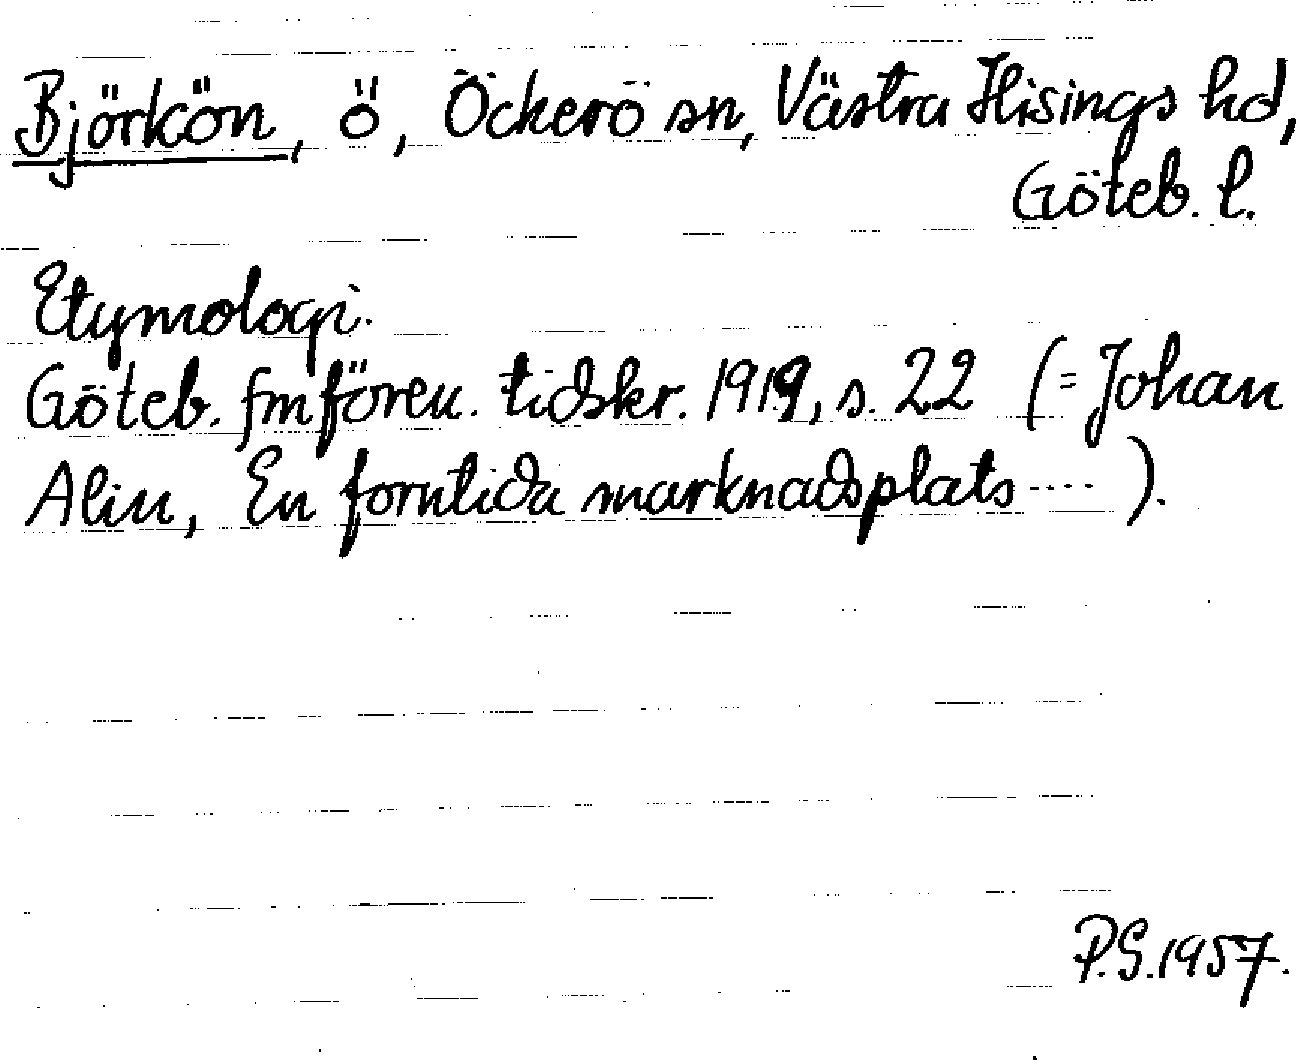 Björkön, ö, Öckerö sn, Västra Hisings hd,
Göteb. l.
Etymologi.
Göteb. fmfören. tidskr. 1919, s. 22 (= Johan
Alin, En forntida marknadsplats ---- ).
P.S. 1957.